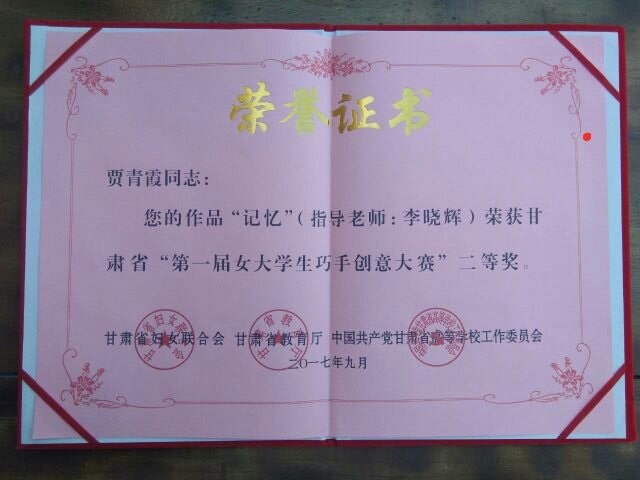 荣誉证书
贾青霞同志：
您的作品“记忆”（指导老师：李晓辉）荣获甘
肃省“第一届女大学生巧手创意大赛”二等奖。
甘肃省妇女联合会 甘肃省教育厅 中国共产党甘肃省高等学校工作委员会
二〇一七年九月